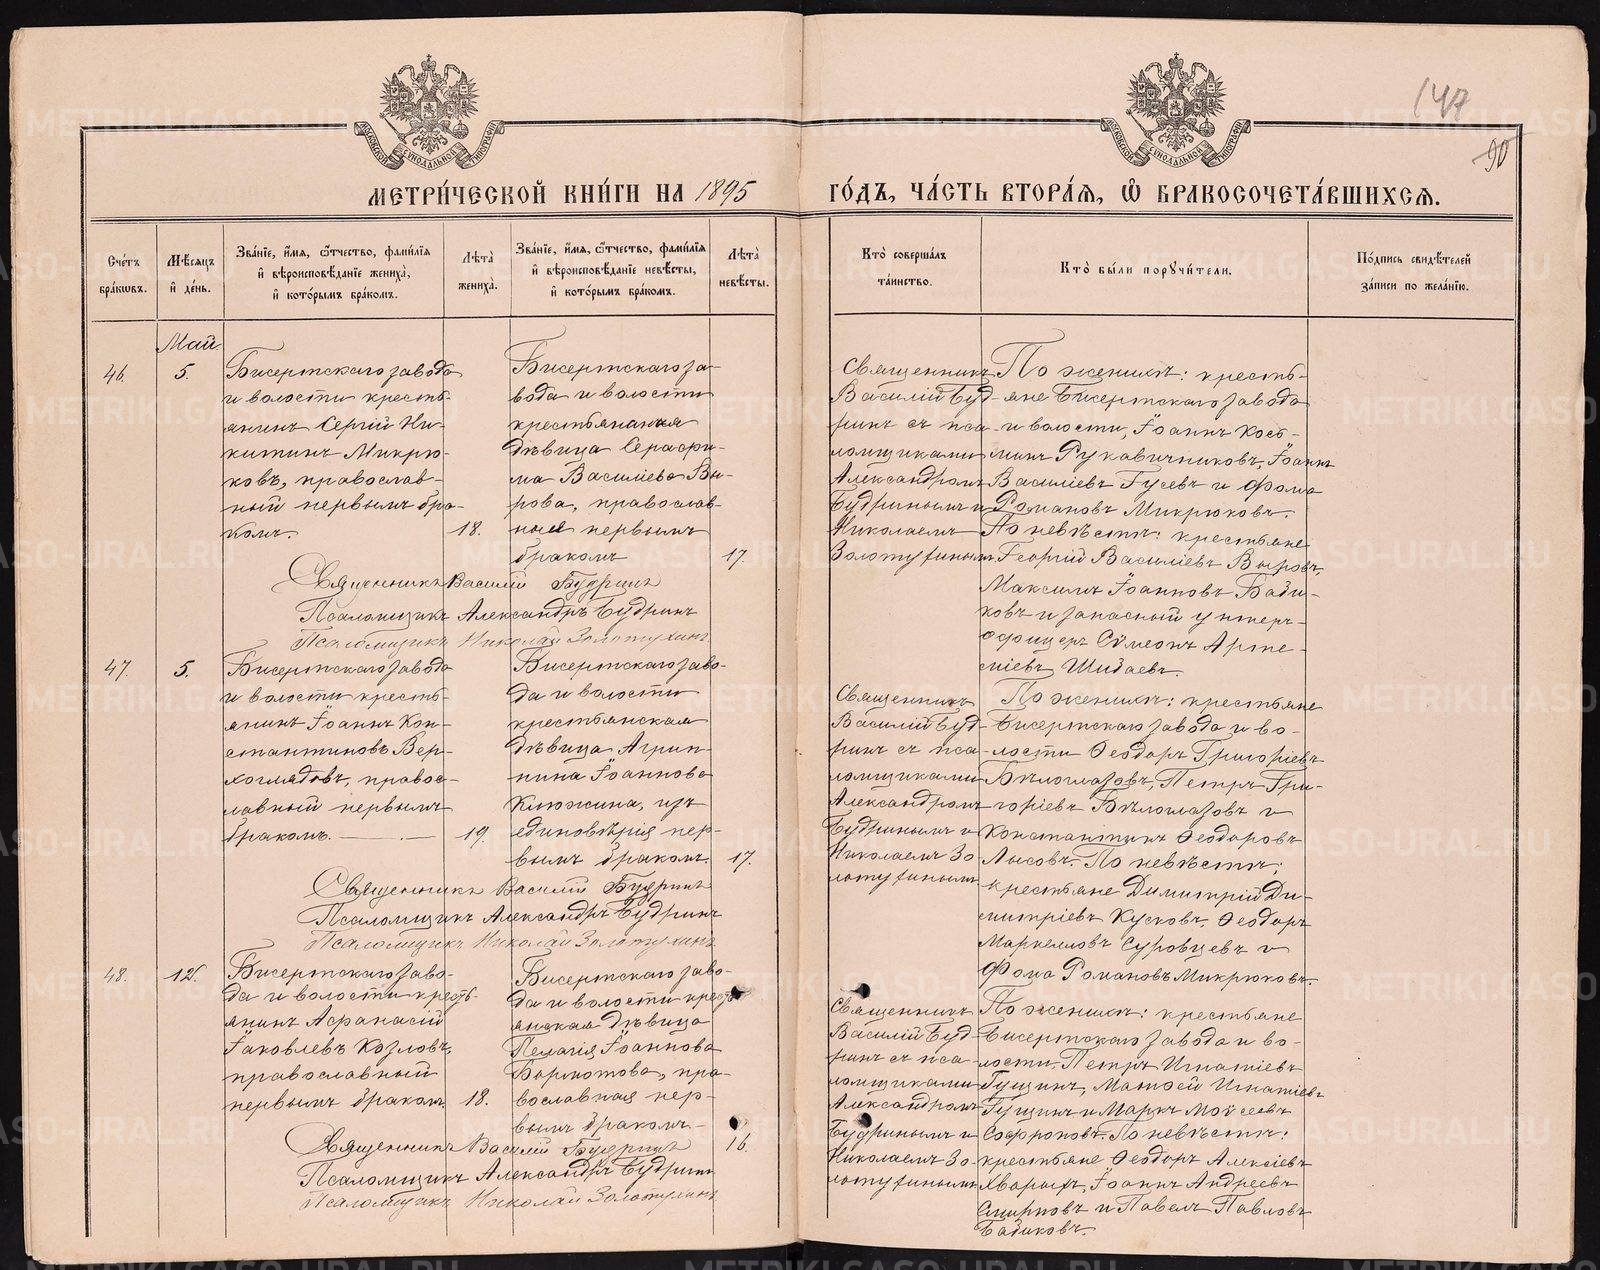 147
90
МОСКОВСКОЙ СѴНОДАЛЬНОЙ ТИПОГРАФІИ
МОСКОВСКОЙ СѴНОДАЛЬНОЙ ТИПОГРАФІИ
МЕТРИ́ЧЕСКОЙ КНИ́ГИ НА 1895
ГО́ДЪ, ЧА́СТЬ ВТОРА́Я, Ѡ БРАКОСОЧЕТА́ВШИХСЯ.
Сче́тъ бра́кѡвъ.
Мѣ́сяцъ и де́нь.
Зва́нїе, и́мя, ѻ́тчество, фами́лїя
и вѣроисповѣ́данїе жениха̀,
и кото́рымъ бра́комъ.
Лѣта̀ жениха̀.
Зва́нїе, и́мя, ѻ́тчество, фами́лїя
и вѣроисповѣ́данїе невѣ́сты,
и кото́рымъ бра́комъ.
Лѣта̀ невѣ́сты.
Кто̀ соверша́лъ та́инство.
Кто̀ бы́ли порꙋчи́тели.
По́дпись свидѣ́телей за́писи по жела́нїю.
Май.
46.
5.
Бисертскаго завода
и волости кресть-
янинъ Сергій Ни-
китинъ Микрю-
ковъ, православ-
ный первымъ бра-
комъ.
18.
Бисертскаго за-
вода и волости
крестьянская
дѣвица Серафи-
ма Василіева Вы-
рова, православ-
ная первымъ
бракомъ
17.
Священникъ
Василій Буд-
ринъ съ пса-
ломщиками
Александромъ
Будринымъ и
Николаемъ
Золотухинымъ
По женихѣ: кресть-
яне Бисертскаго завода
и волости, Іоаннъ Козь-
минъ Рукавичниковъ, Іоаннъ
Василіевъ Гусевъ и Фома
Романовъ Микрюковъ.
По невѣстѣ: крестьяне
Георгій Василіевъ Выровъ,
Максимъ Іоанновъ Бади-
ковъ и запасный унтеръ-
офицеръ Сѵмеонъ Арте-
міевъ Шибаевъ.
Священникъ Василій Будринъ
Псаломщикъ Александръ Будринъ
Псаломщикъ Николай Золотухинъ
47.
5.
Бисертскаго завода
и волости кресть-
янинъ Іоаннъ Кон-
стантиновъ Вер-
хоглядовъ, правос-
лавный первымъ
бракомъ.
19.
Бисертскаго заво-
да и волости
крестьянская
дѣвица Агрип-
пина Іоаннова
Клюжина, изъ
единовѣрія пер-
вымъ бракомъ.
17.
Священникъ
Василій Буд-
ринъ съ пса-
ломщиками
Александромъ
Будринымъ и
Николаемъ Зо-
лотухинымъ
По женихѣ: крестьяне
Бисертскаго завода и во-
лости Ѳеодоръ Григоріевъ
Бѣлоглазовъ, Петръ Гри-
горіевъ Бѣлоглазовъ и
Константинъ Ѳеодоровъ
Лысовъ. По невѣстѣ:
крестьяне Димитрій Ди-
митріевъ Кусковъ, Ѳеодоръ
Маркелловъ Суровцевъ и
Фома Романовъ Микрюковъ.
Священникъ Василій Будринъ
Псаломщикъ Александръ Будринъ
Псаломщикъ Николай Золотухинъ
48.
12.
Бисертскаго заво-
да и волости кресть-
янинъ Афанасій
Іаковлевъ Козловъ,
православный
первымъ бракомъ.
18.
Бисертскаго заво-
да и волости кресть-
янская дѣвица
Пелагія Іоаннова
Бормотова, пра-
вославная пер-
вымъ бракомъ.
16.
Священникъ
Василій Буд-
ринъ съ пса-
ломщиками
Александромъ
Будринымъ и
Николаемъ Зо-
лотухинымъ
По женихѣ: крестьяне
Бисертскаго завода и во-
лости Петръ Игнатіевъ
Гущинъ, Матѳей Игнатіевъ
Гущинъ и Маркъ Моѵсеевъ
Софроновъ. По невѣстѣ:
крестьяне Ѳеодоръ Алексіевъ
Хварыхъ, Іоаннъ Андреевъ
Смирновъ и Павелъ Павловъ
Бадиковъ.
Священникъ Василій Будринъ
Псаломщикъ Александръ Будринъ
Псаломщикъ Николай Золотухинъ
METRIKI.GASO-URAL.RU